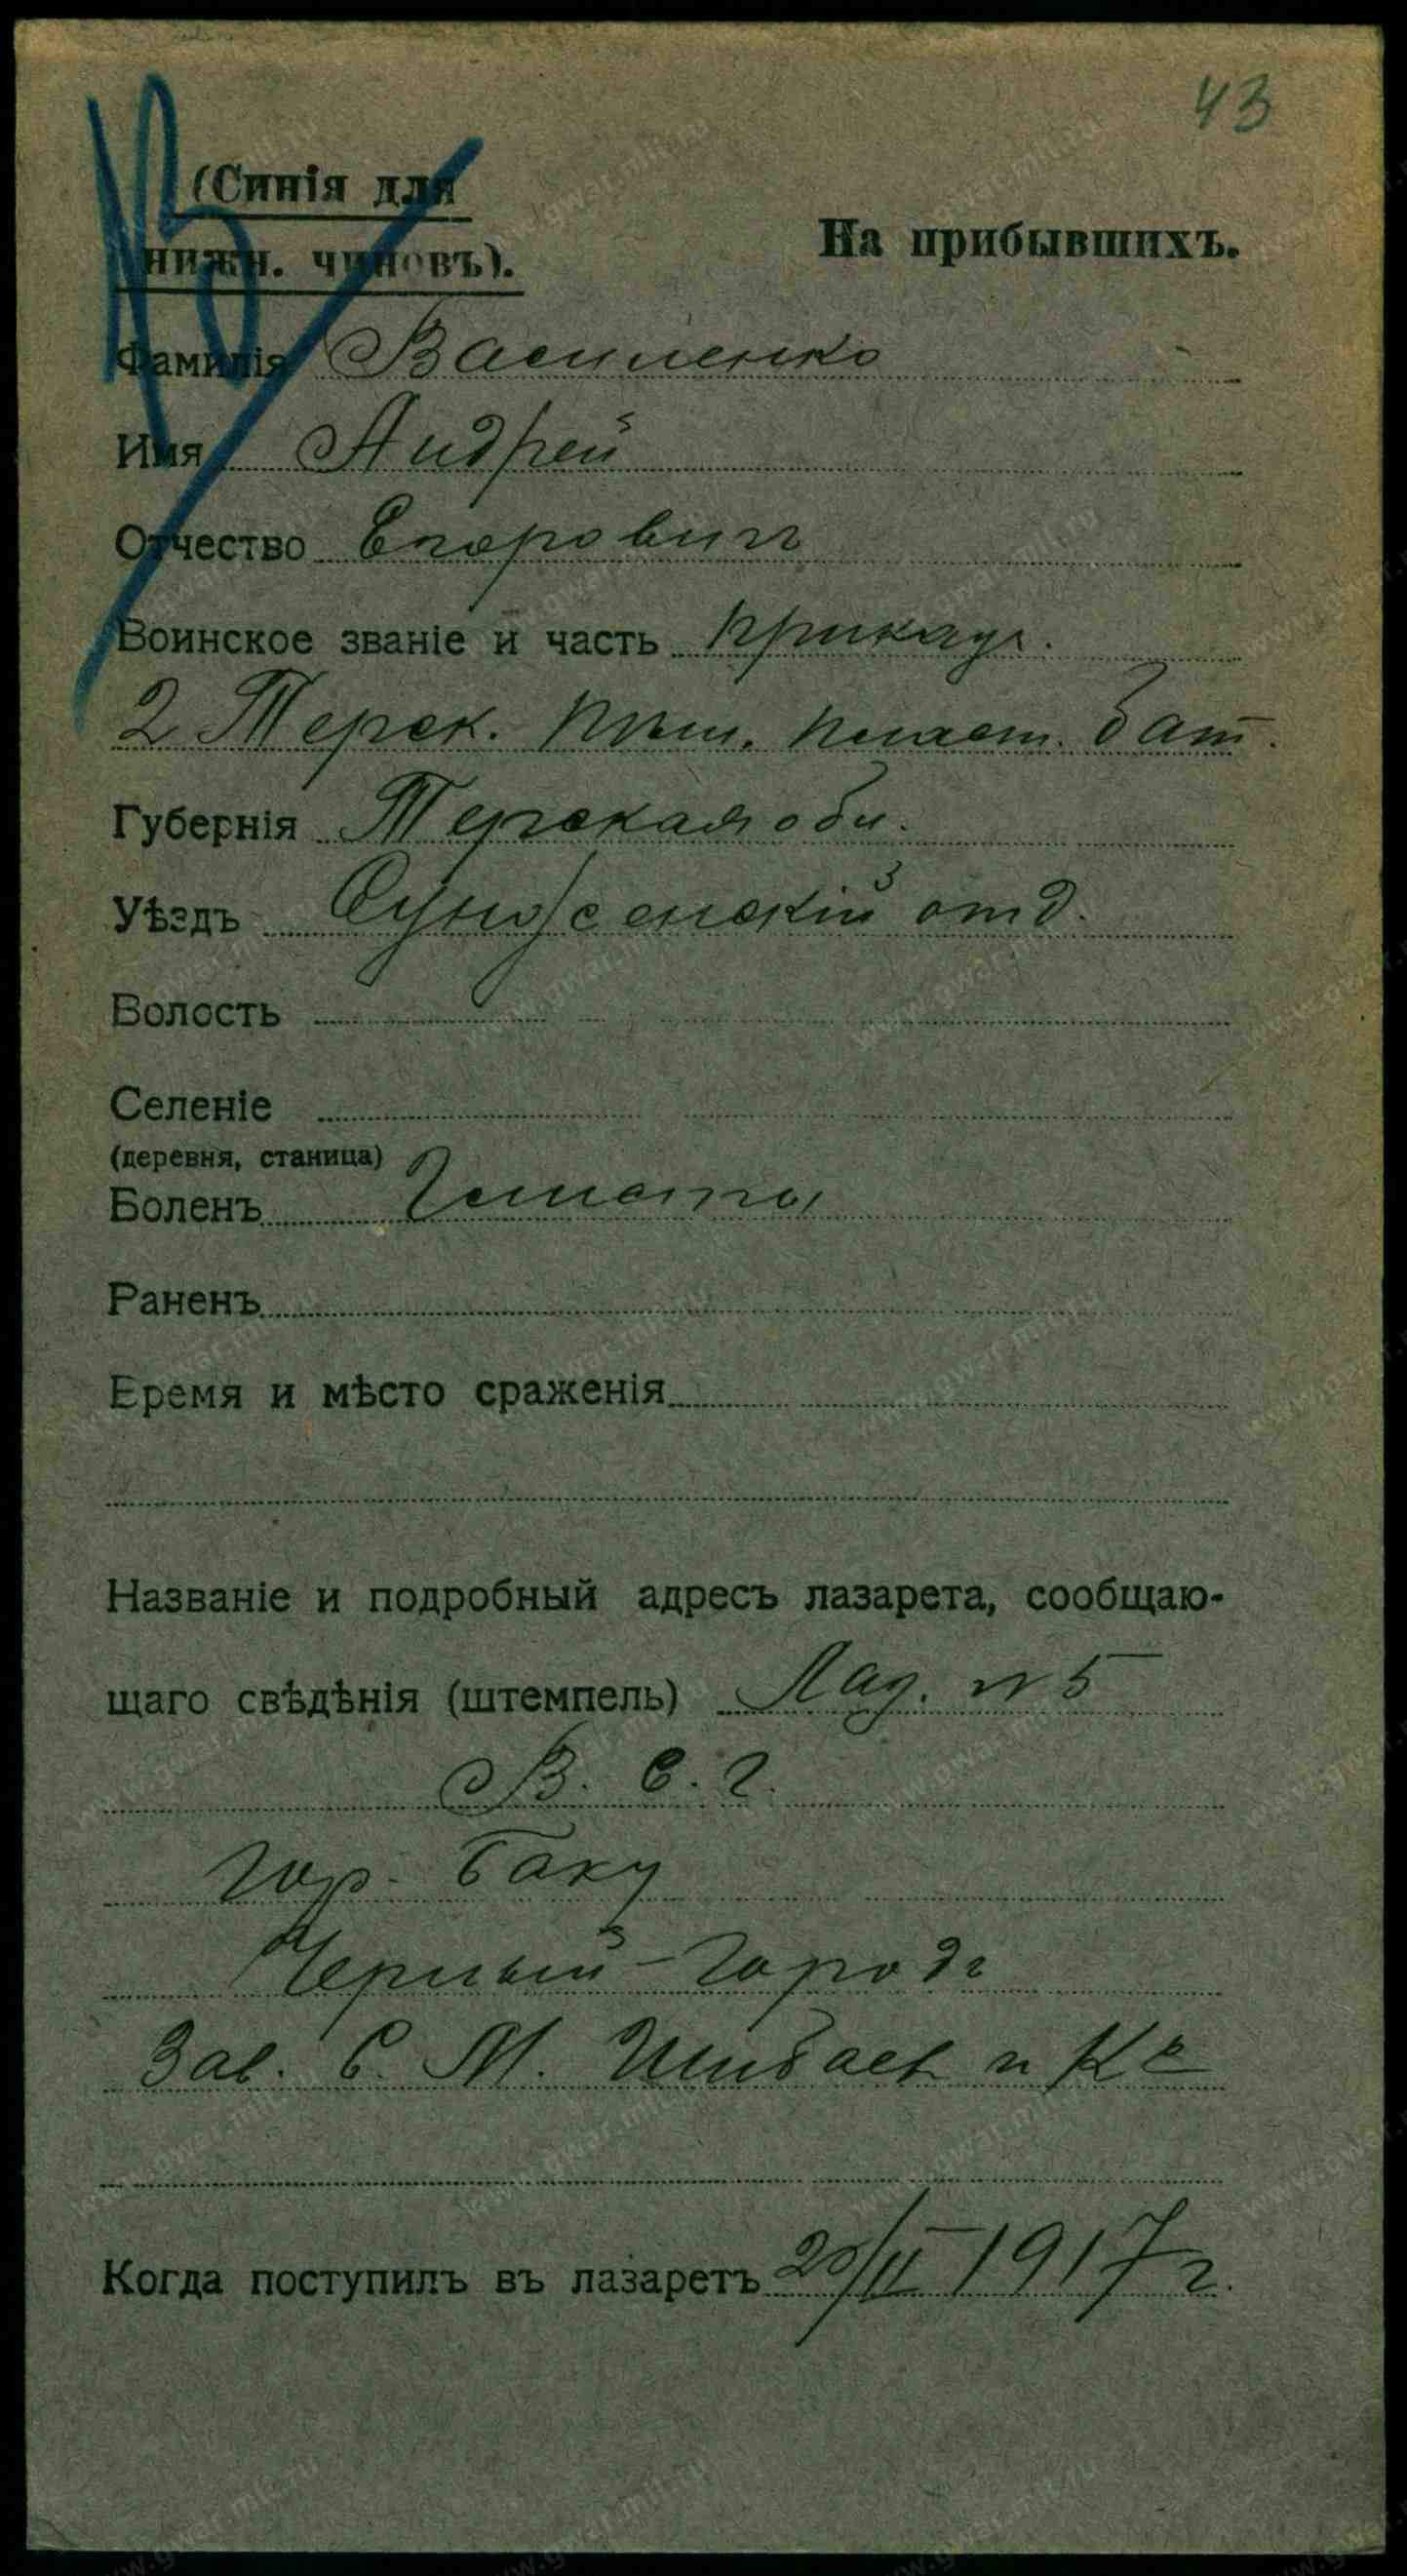 43
(Синія для
нижн. чиновъ).
На прибывшихъ.
Фамилія Василенко
Имя Андрей
Отчество Егоровичъ
Воинское званіе и часть приказн.
2 Терск. Пласт. бат.
Губернія Терская обл.
Уѣздъ Сунженскій отд.
Волость
Селеніе
(деревня, станица)
Боленъ
Раненъ
Время и мѣсто сраженія
Названіе и подробный адресъ лазарета, сообщаю-
щаго свѣдѣнія (штемпель) Лаз. № 5
В. С. Г.
Гор. Баку
Черный-Городъ
Зав. С. М. Шибаевъ и Кº
Когда поступилъ въ лазаретъ 20/II 1917 г.